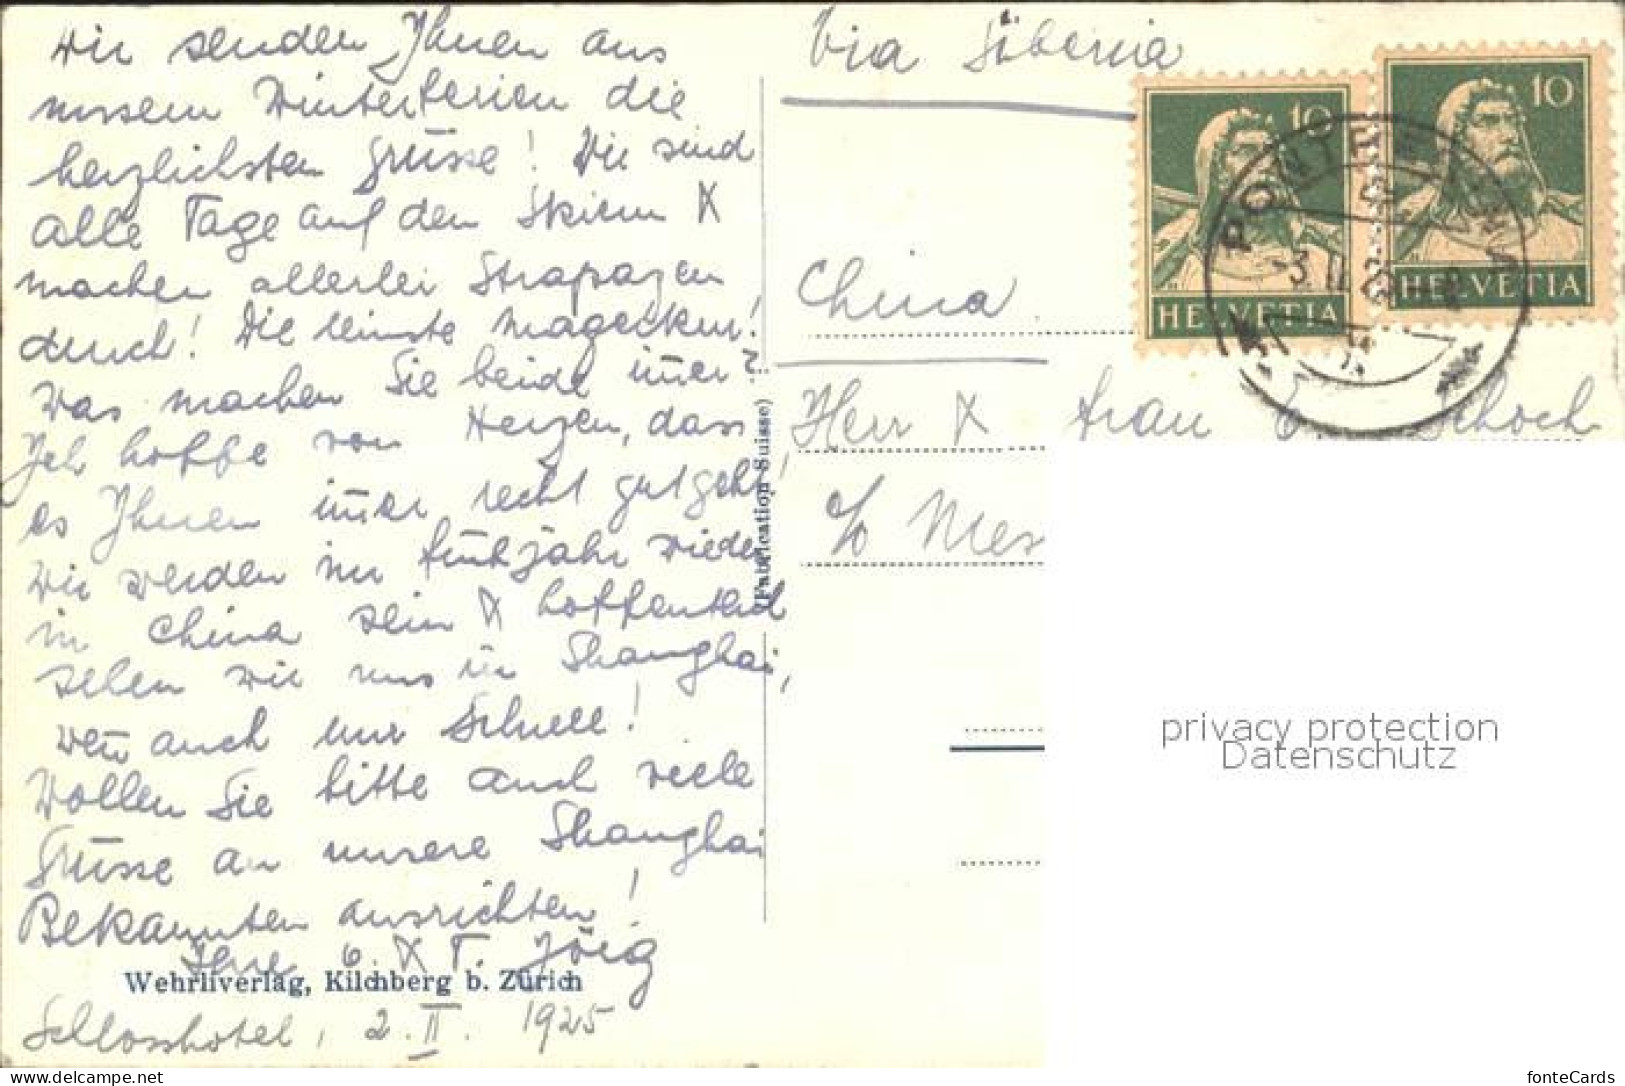 Wir senden Ihnen aus
unsern Winterferien die
herzlichsten Grüsse! Wir sind
alle Tage auf den Skiern &
machen allerlei Strapazen
durch!
Was machen Sie beide im̄er?
Ich hoffe von Herzen, dass
es Ihnen im̄er recht gut geht!
Wir werden im Frühjahr wieder
in China sein & hoffentlich
sehen wir uns in Shanghai,
wen̄ auch nur Schnell!
Wollen Sie bitte auch viele
Grüsse an unsere Shanghai
Bekannten ausrichten!
Ihre G. & T. Jörg
Wehrliverlag, Kilchberg b. Zürich
Schlosshotel, 2. II. 1925
(Fabrication Suisse)
Via Siberia
10
HELVETIA
10
HELVETIA
PONTRESINA
-3.II.25
China
Herr & Frau E. Schoch
c/o Mes
privacy protection
Datenschutz
www.delcampe.net
fonteCards